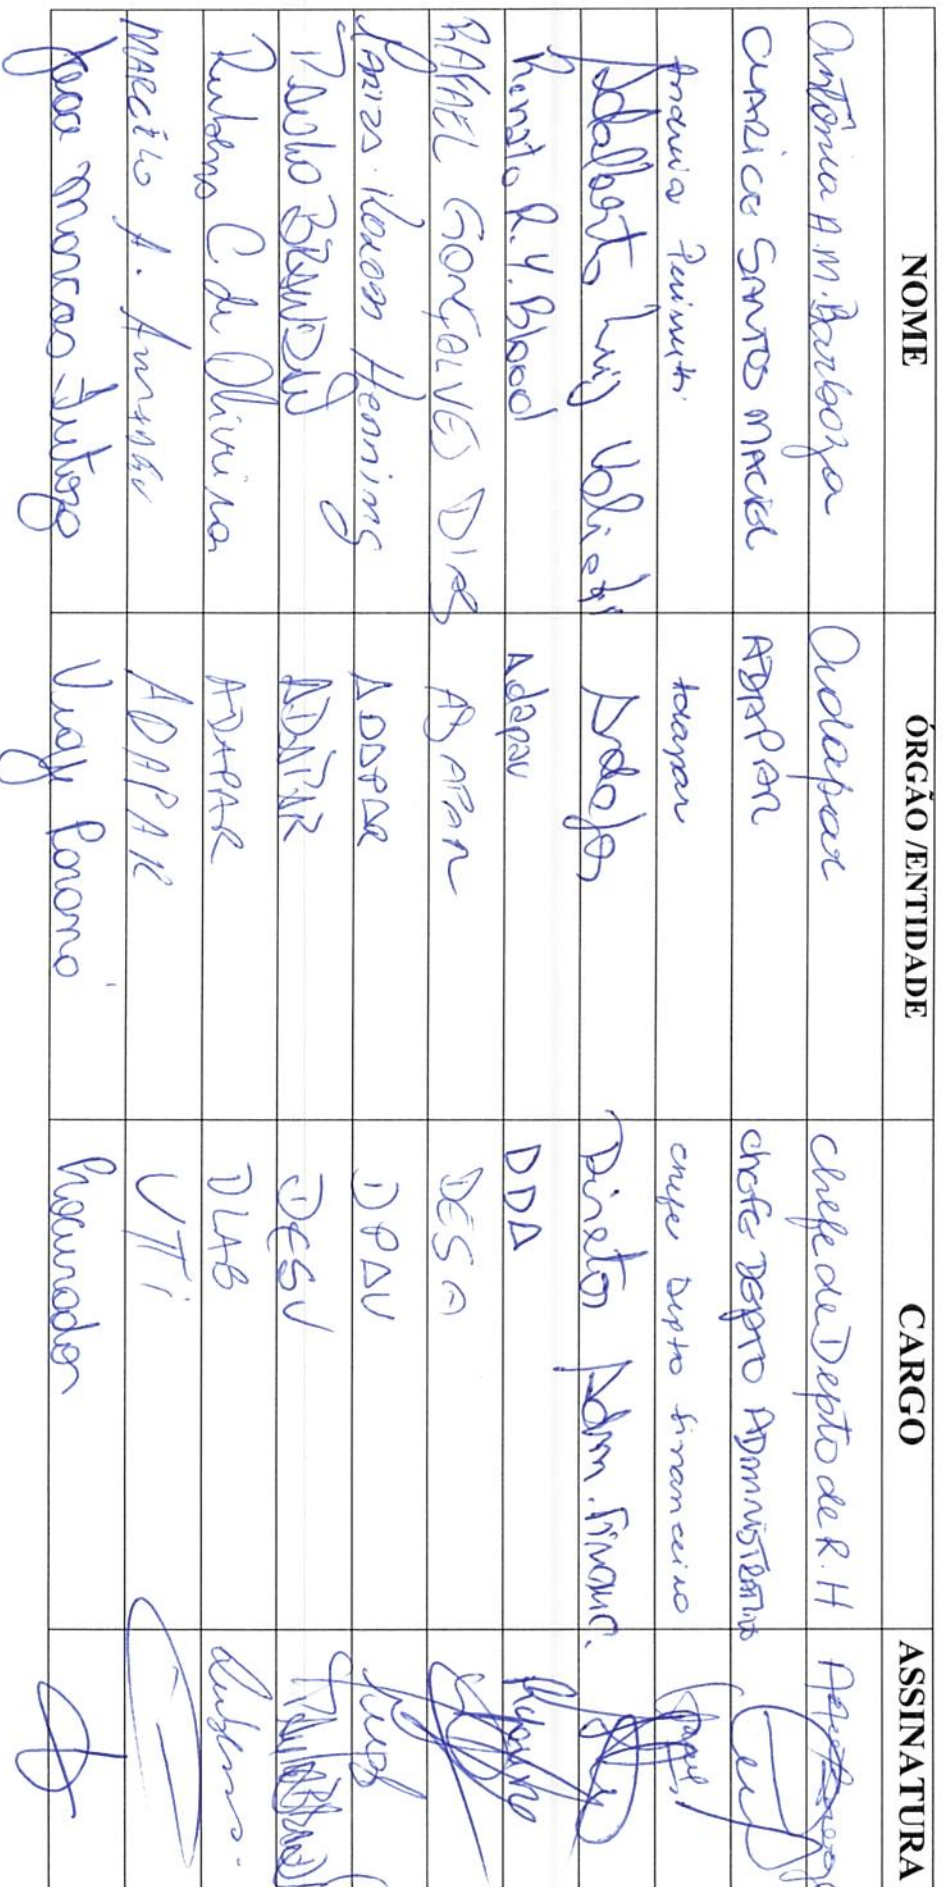 NOME ÓRGÃO /ENTIDADE CARGO ASSINATURA
Antônia A.M. Barboza Adapar Chefe de Depto de R.H
CLARICE SANTOS MACIEL ADAPAR CHEFE DEPTO ADMINISTRATIVO
Adapar Chefe Depto Financeiro
Adalberto Luiz Valiati Adapar Diretor Adm. Financ.
Renato R. Y. Blood Adapar DDA
RAFAEL GONÇALVES DIAS ADAPAR DESA
Henning ADAPAR DPAU
ADAPAR DESV
Rubens C de Oliveira ADAPAR DLAB Rubens
MARCÍLIO A. ADAPAR UTI
Marcos Paraná Procurador